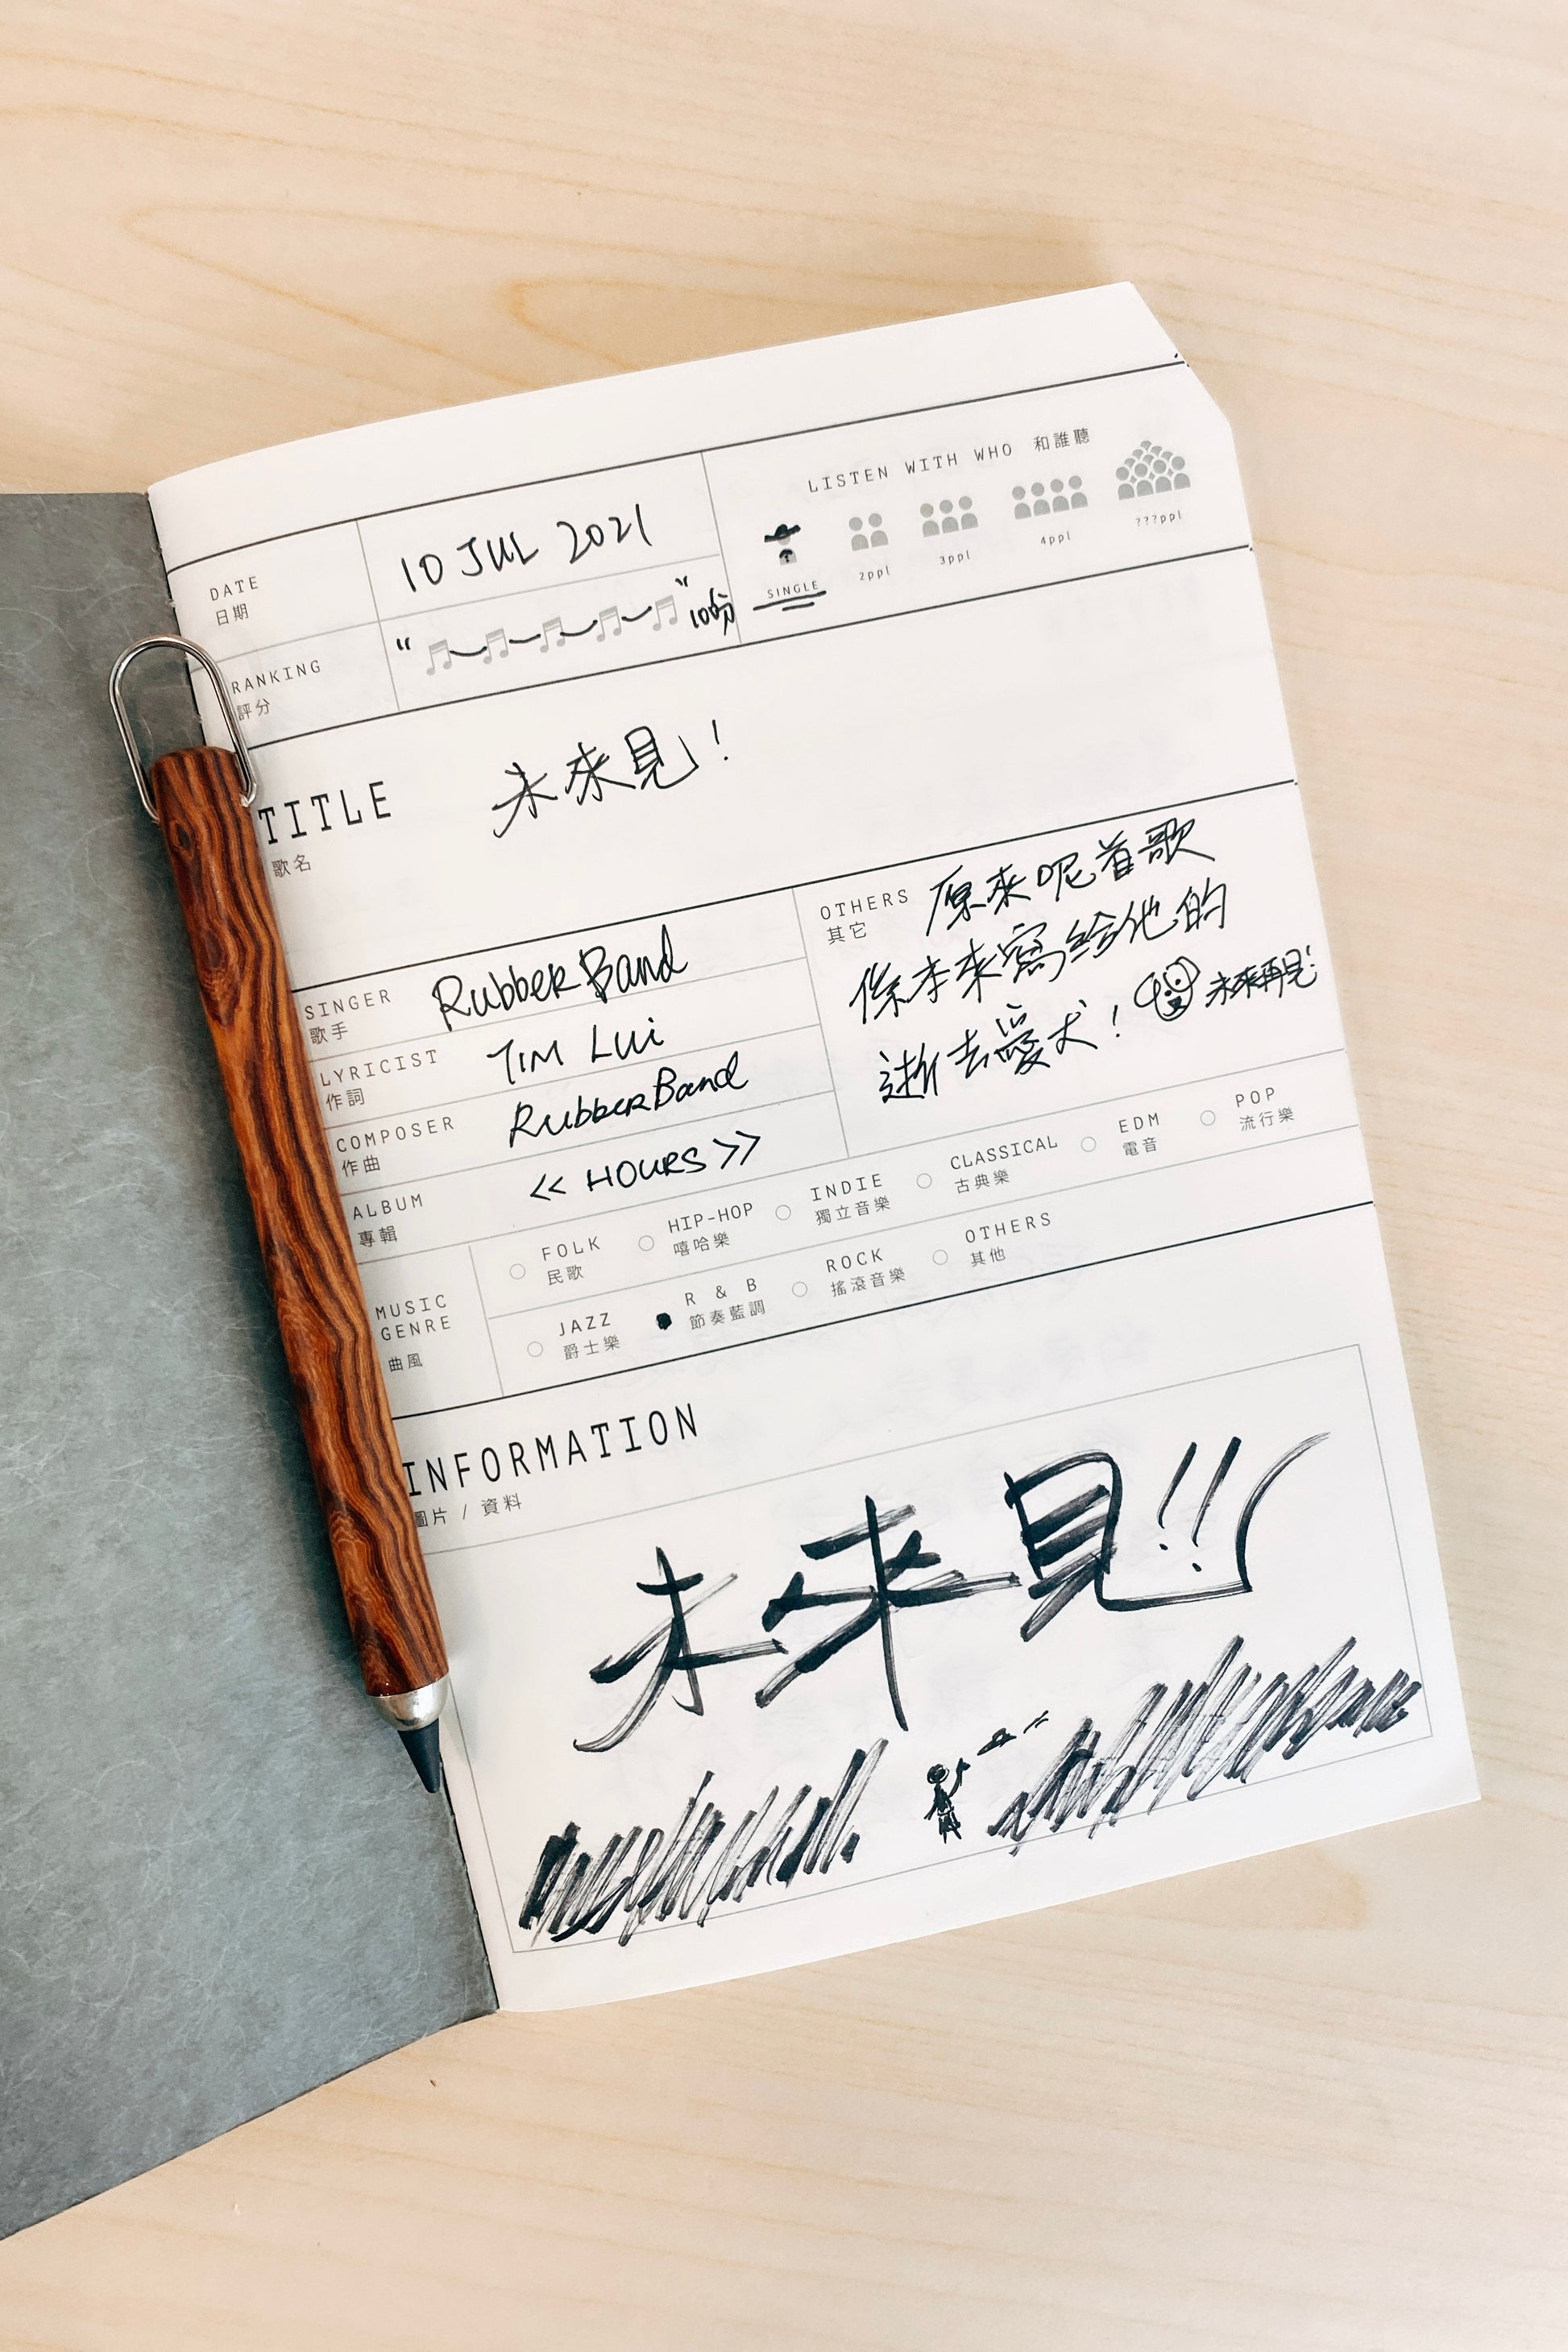 LISTEN WITH WHO 和誰聽
DATE
日期
10 JUL 2021
SINGLE
2ppl
3ppl
4ppl
???ppl
RANKING
評分
“ ” 10分
TITLE
歌名
未來見!
SINGER
歌手
RubberBand
LYRICIST
作詞
TIM LUI
COMPOSER
作曲
RubberBand
ALBUM
專輯
<< HOURS >>
OTHERS
其它
原來呢首歌
係本來寫給他的
逝去愛犬! 未來再見!
MUSIC
GENRE
曲風
FOLK
民歌
HIP-HOP
嘻哈樂
INDIE
獨立音樂
CLASSICAL
古典樂
EDM
電音
POP
流行樂
JAZZ
爵士樂
R & B
節奏藍調
ROCK
搖滾音樂
OTHERS
其他
INFORMATION
圖片 / 資料
未來見!!